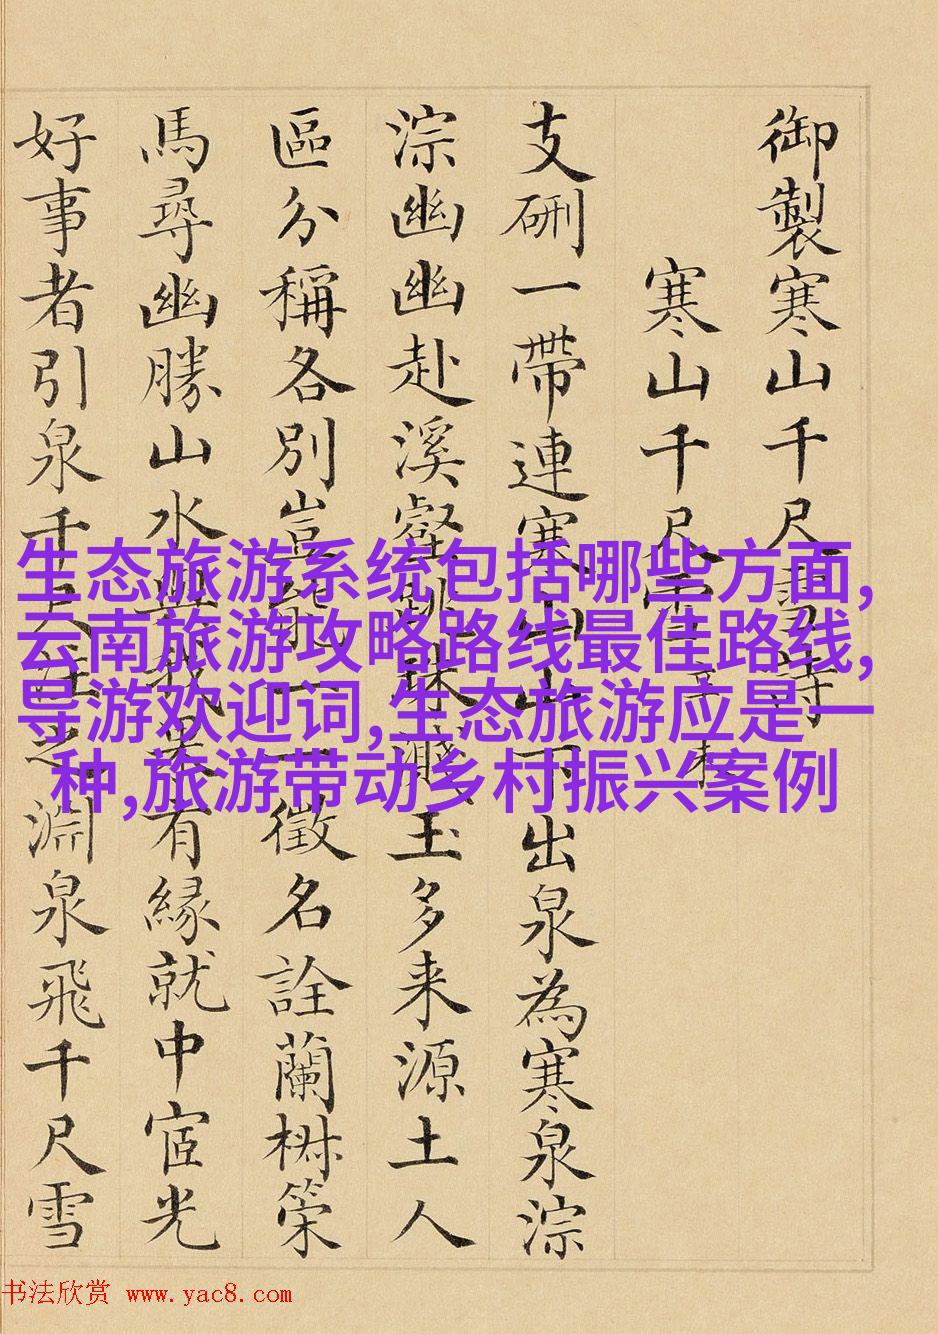 御製寒山千尺雪詩
寒山千尺雪
支硎一帶連寒山山下出泉為寒泉淙
淙幽幽赴溪壑跳珠濺玉多来源土人
區分稱各別豈能一一徵名詮蘭椒策
馬尋幽勝山水與我果有緣就中宧光
好事者引泉千尺注之淵泉飛千尺雪
生态旅游系统包括哪些方面,
云南旅游攻略路线最佳路线,
导游欢迎词,生态旅游应是一
种,旅游带动乡村振兴案例
书法欣赏 www.yac8.com